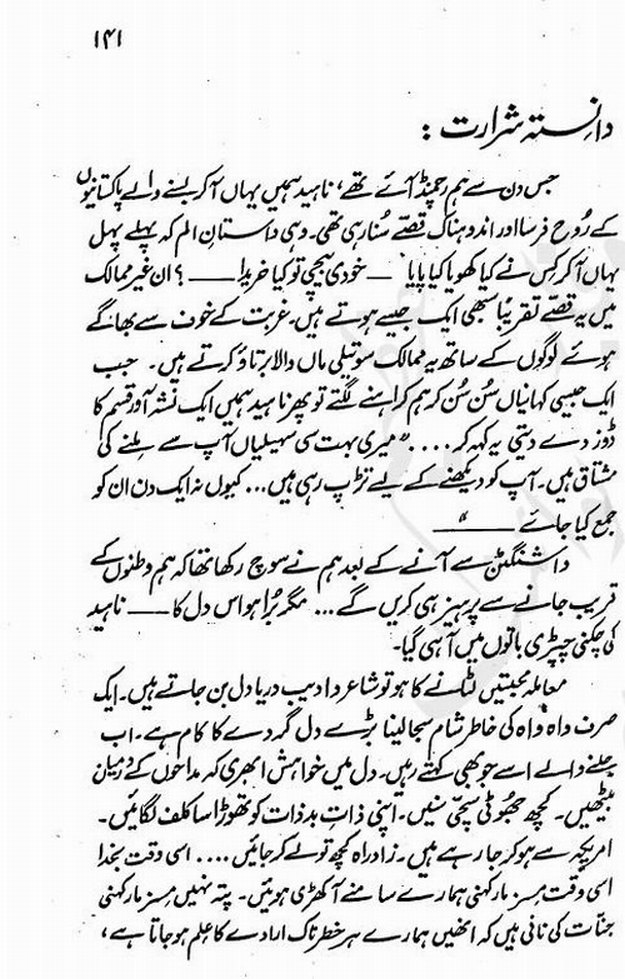 ۱۴۱
دانستہ شرارت :
جس دن سے ہم رچمنڈ آئے تھے، ناہید ہمیں یہاں آ کر بسنے والے پاکستانیوں
کے رُوح فرسا اور اندوہناک قصّے سُنا رہی تھی۔ وہی داستانِ الم کہ پہلے پہل
یہاں آ کر کس نے کیا کھویا کیا پایا — خودی بیچی تو کیا خریدا —— ؟ ان غیر ممالک
میں یہ قصّے تقریباً سبھی ایک جیسے ہوتے ہیں۔ غربت کے خوف سے بھاگے
ہوئے لوگوں کے ساتھ یہ ممالک سوتیلی ماں والا برتاؤ کرتے ہیں۔ جب
ایک جیسی کہانیاں سُن سُن کر ہم کراہنے لگتے تو پھر ناہید ہمیں ایک نشہ آور قسم کا
ڈوز دے دیتی یہ کہہ کر .... "میری بہت سی سہیلیاں آپ سے ملنے کی
مشتاق ہیں۔ آپ کو دیکھنے کے لیے تڑپ رہی ہیں ... کیوں نہ ایک دن ان کو
جمع کیا جائے ——"
واشنگٹن سے آنے کے بعد ہم نے سوچ رکھا تھا کہ ہم وطنوں کے
قریب جانے سے پرہیز ہی کریں گے ... مگر بُرا ہو اس دل کا —— ناہید
کی چکنی چپڑی باتوں میں آ ہی گیا۔
معاملہ محبتیں لٹانے کا ہو تو شاعر و ادیب دریا دل بن جاتے ہیں۔ ایک
صرف واہ واہ کی خاطر شام سجا لینا بڑے دل گردے کا کام ہے۔ اب
جلنے والے اسے جو بھی کہتے رہیں۔ دل میں خواہش ابھری کہ مداحوں کے درمیان
بیٹھیں۔ کچھ جھوٹی سچی سنیں۔ اپنی ذاتِ بد ذات کو تھوڑا سا کلف لگائیں۔
امریکہ سے ہو کر جا رہے ہیں۔ زادِ راہ کچھ تو لے کر جائیں .... اسی وقت بخدا
اسی وقت مِسز مارکہنی ہمارے سامنے آ کھڑی ہوئیں۔ پتہ نہیں مِسز مارکہنی
جنات کی نانی ہیں کہ انھیں ہمارے ہر خطرناک ارادے کا علم ہو جاتا ہے،